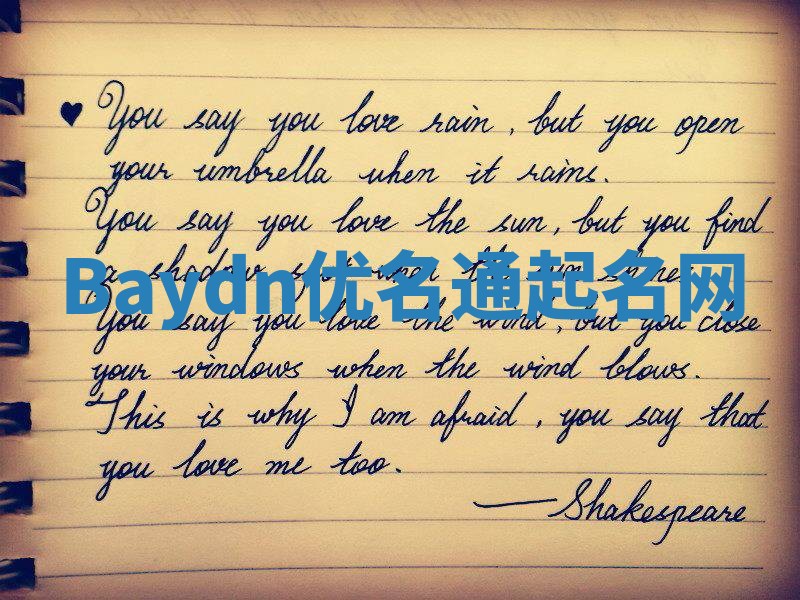 ♥ You say you love rain, but you open
your umbrella when it rains.
You say you love the sun, but you find
a shadow spot when the sun shines.
Baydn优名通起名网
You say you love the wind, but you close
your windows when the wind blows.
This is why I am afraid, you say that
you love me too.
— Shakespeare